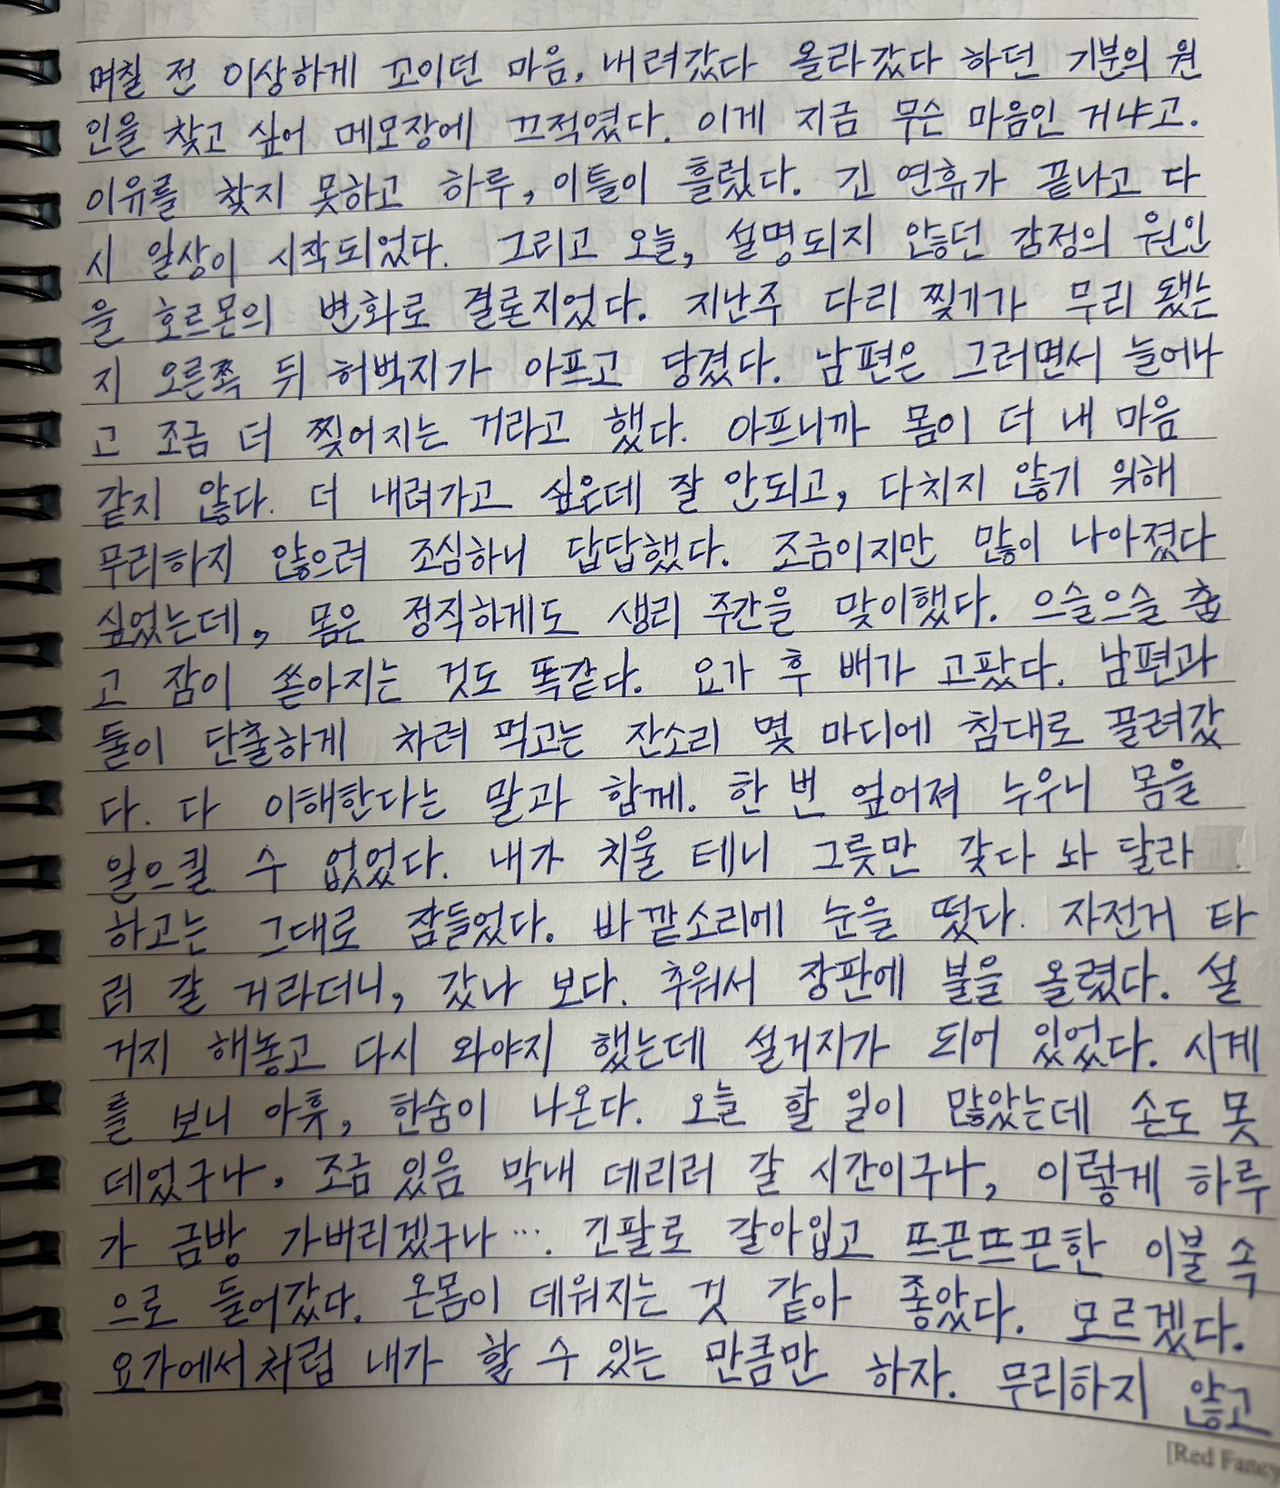 며칠 전 이상하게 꼬이던 마음, 내려갔다 올라갔다 하던 기분의 원
인을 찾고 싶어 메모장에 끄적였다. 이게 지금 무슨 마음인 거냐고.
이유를 찾지 못하고 하루, 이틀이 흘렀다. 긴 연휴가 끝나고 다
시 일상이 시작되었다. 그리고 오늘, 설명되지 않던 감정의 원인
을 호르몬의 변화로 결론지었다. 지난주 다리 찢기가 무리 됐는
지 오른쪽 뒤 허벅지가 아프고 당겼다. 남편은 그러면서 늘어나
고 조금 더 찢어지는 거라고 했다. 아프니까 몸이 더 내 마음
같지 않다. 더 내려가고 싶은데 잘 안되고, 다치지 않기 위해
무리하지 않으려 조심하니 답답했다. 조금이지만 많이 나아졌다
싶었는데, 몸은 정직하게도 생리 주간을 맞이했다. 으슬으슬 춥
고 잠이 쏟아지는 것도 똑같다. 요가 후 배가 고팠다. 남편과
둘이 단출하게 차려 먹고는 잔소리 몇 마디에 침대로 끌려갔
다. 다 이해한다는 말과 함께. 한 번 엎어져 누우니 몸을
일으킬 수 없었다. 내가 치울 테니 그릇만 갖다 놔 달라
하고는 그대로 잠들었다. 바깥소리에 눈을 떴다. 자전거 타
러 갈 거라더니, 갔나 보다. 추워서 장판에 불을 올렸다. 설
거지 해놓고 다시 와야지 했는데 설거지가 되어 있었다. 시계
를 보니 아휴, 한숨이 나온다. 오늘 할 일이 많았는데 손도 못
데었구나. 조금 있음 막내 데리러 갈 시간이구나, 이렇게 하루
가 금방 가버리겠구나…. 긴팔로 갈아입고 뜨끈뜨끈한 이불 속
으로 들어갔다. 온몸이 데워지는 것 같아 좋았다. 모르겠다.
요가에서처럼 내가 할 수 있는 만큼만 하자. 무리하지 않고
[Red Fancy